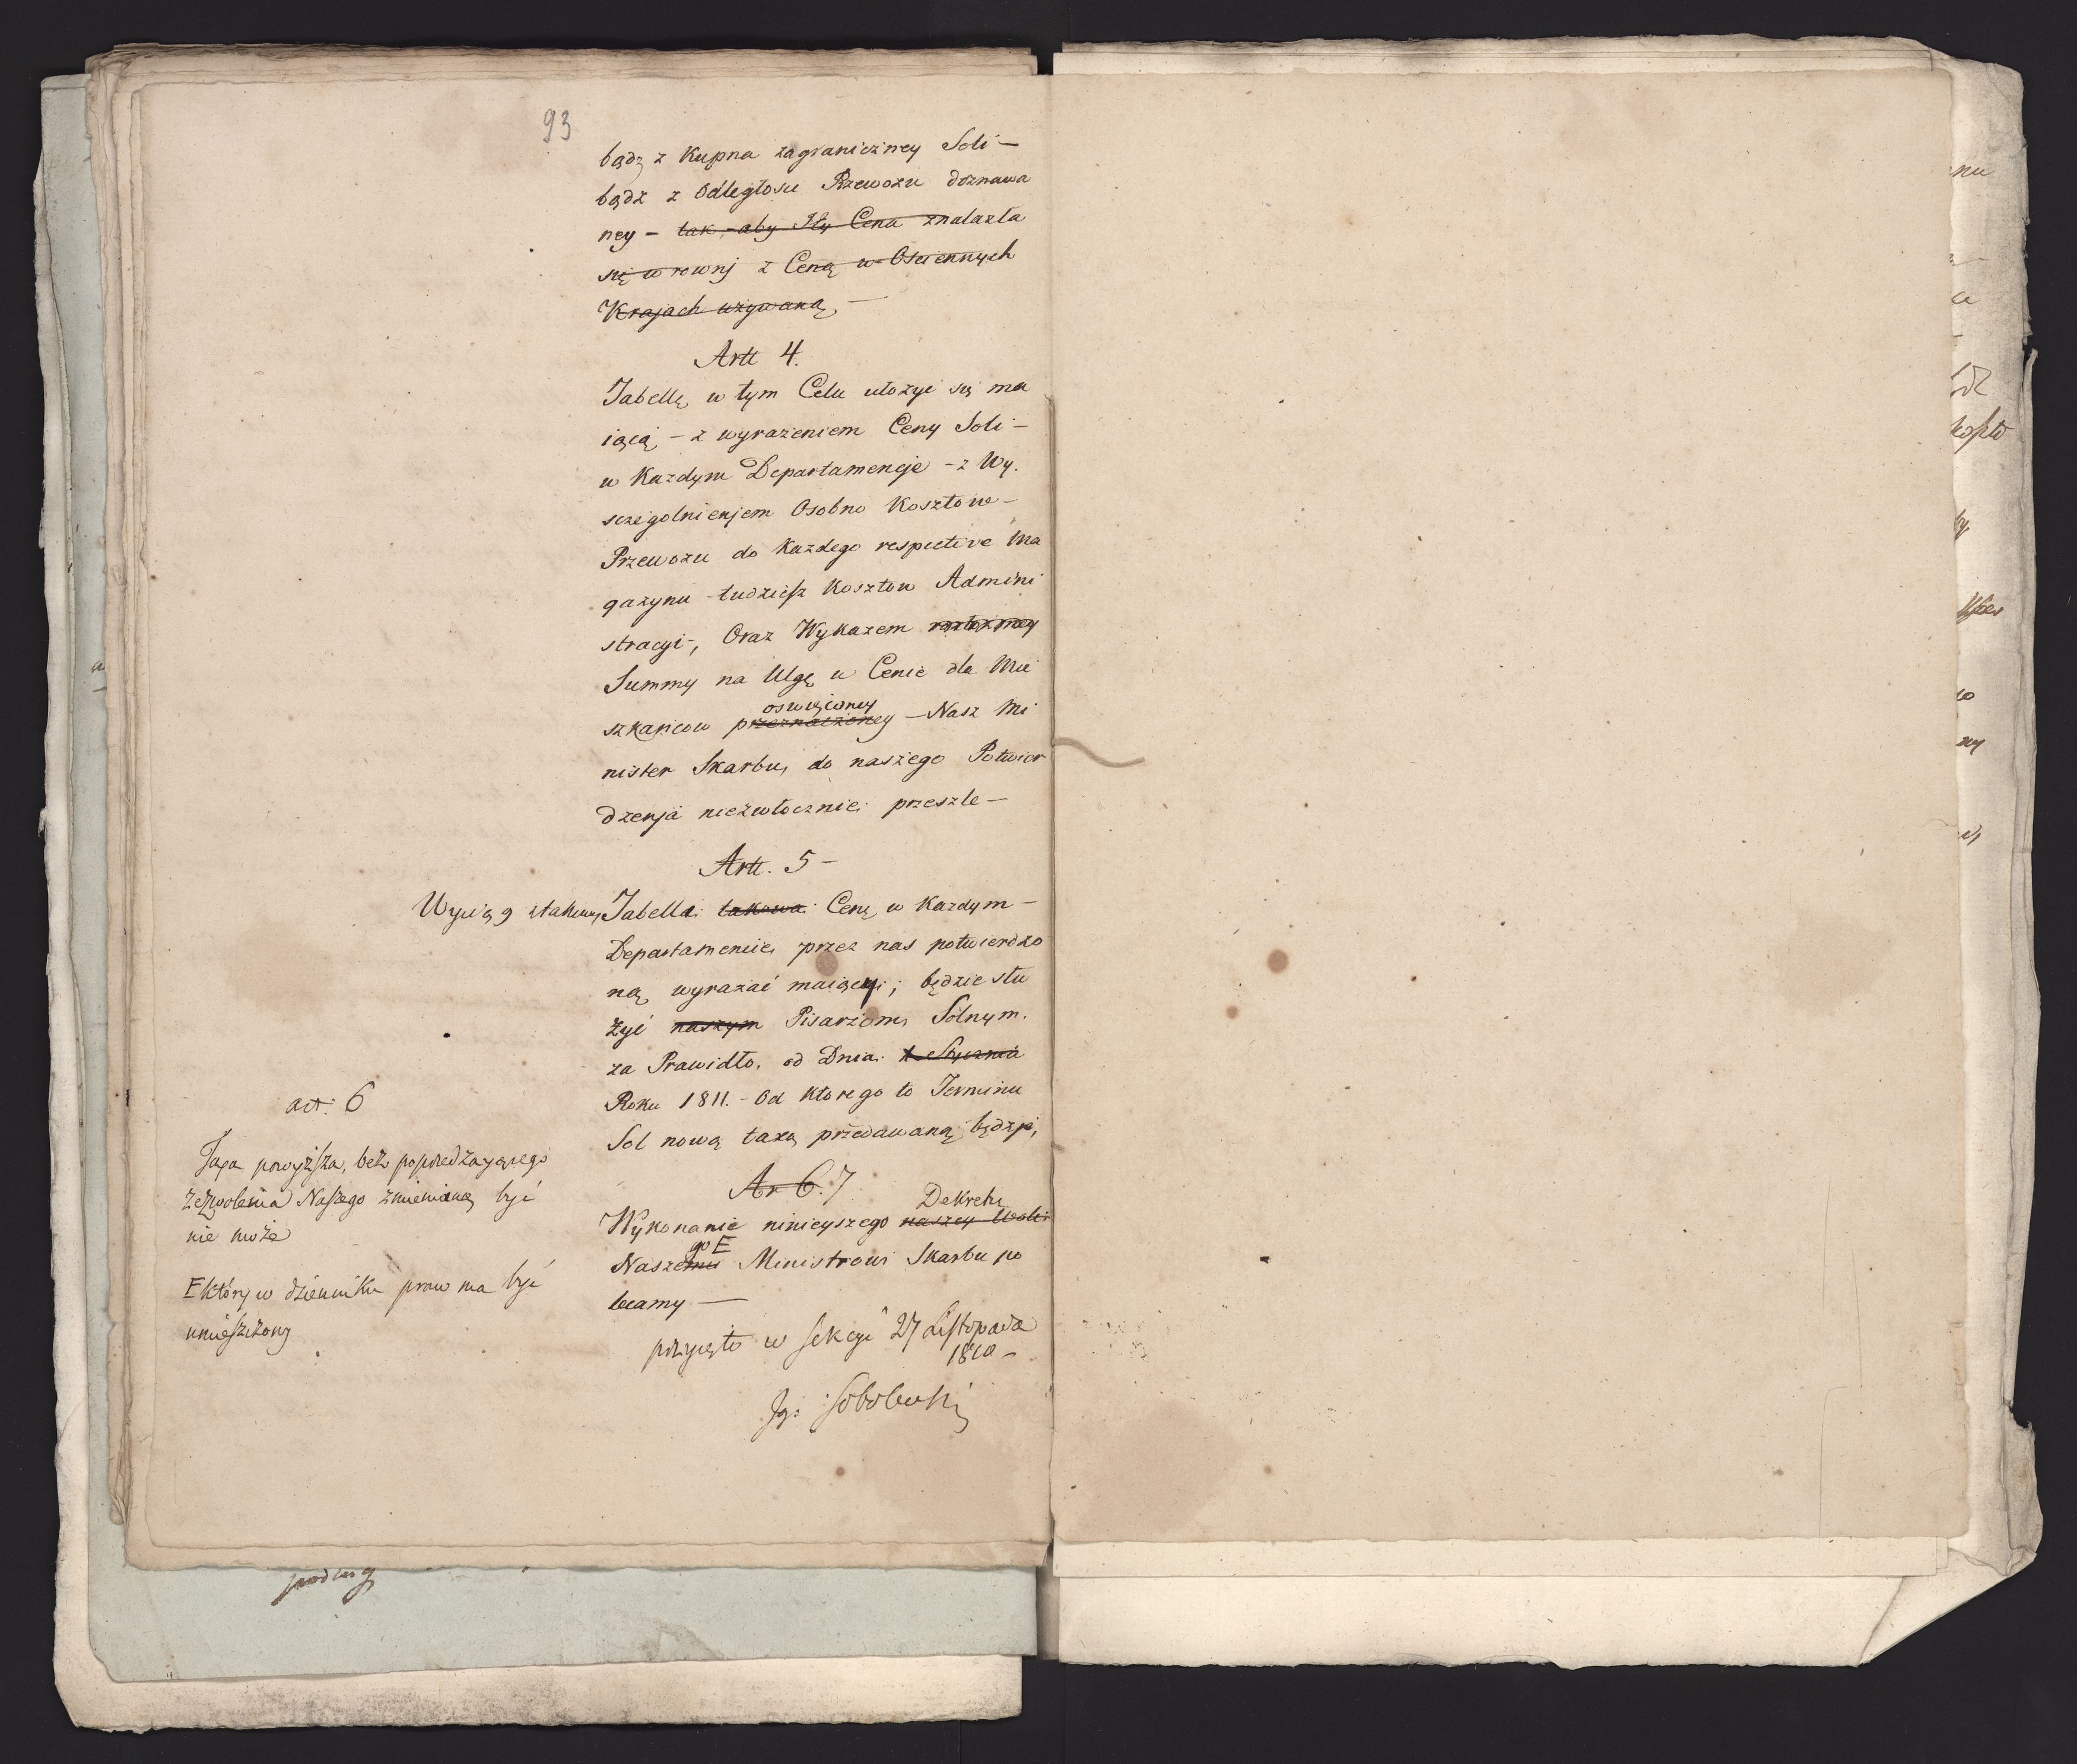 93
bądz z Kupna zagraniczney Soli —
bądz z Odległosci Przewozu doznawa
ney — tak - aby Jey Cena znalazła
się w rowny z Ceną w Osciennych
Krajach używaną, —
Artt 4.
Tabellę w tym Celu ułożyć się ma
iącą, — z wyrażeniem Ceny Soli —
w Każdym Departamencje — z Wy.
szczegolnienjem Osobno Kosztow —
Przewozu do Każdego respective Ma
gazynu - tudzież Kosztow Admini
stracyi -, Oraz Wykazem
Summy na Ulgę w Cenie dla Mie
oswięconey
szkancow przeznaczoney — Nasz Mi
nister Skarbu, do naszego Potwier
dzenja niezwłocznie przeszle —
Artt. 5 —
Wyciąg z takowey Tabella takowa Cenę w Każdym —
Departamencie, przez nas potwierdzo
ną, wyrażać maiącey; będzie słu
żyć naszym Pisarzom, Solnym.
za Prawidło, od Dnia 1 Stycznia
Roku 1811. - Od ktorego to Terminu
Sol nową taxą przedawaną będzje,
art. 6
Taxa powyższa, bez poprzedzającego
zezwolenia Naszego zmienioną być
nie może
Ar 6. 7
Dekretu
Wykonanie ninieyszego naszey Woli
go E
Naszemu Ministrowi Skarbu po
lecamy —
E który w dzienniku praw ma być
umieszczony
przyięto w Sekcyi 27 Listopada
1810 —
Ig: Sobolewski
podług